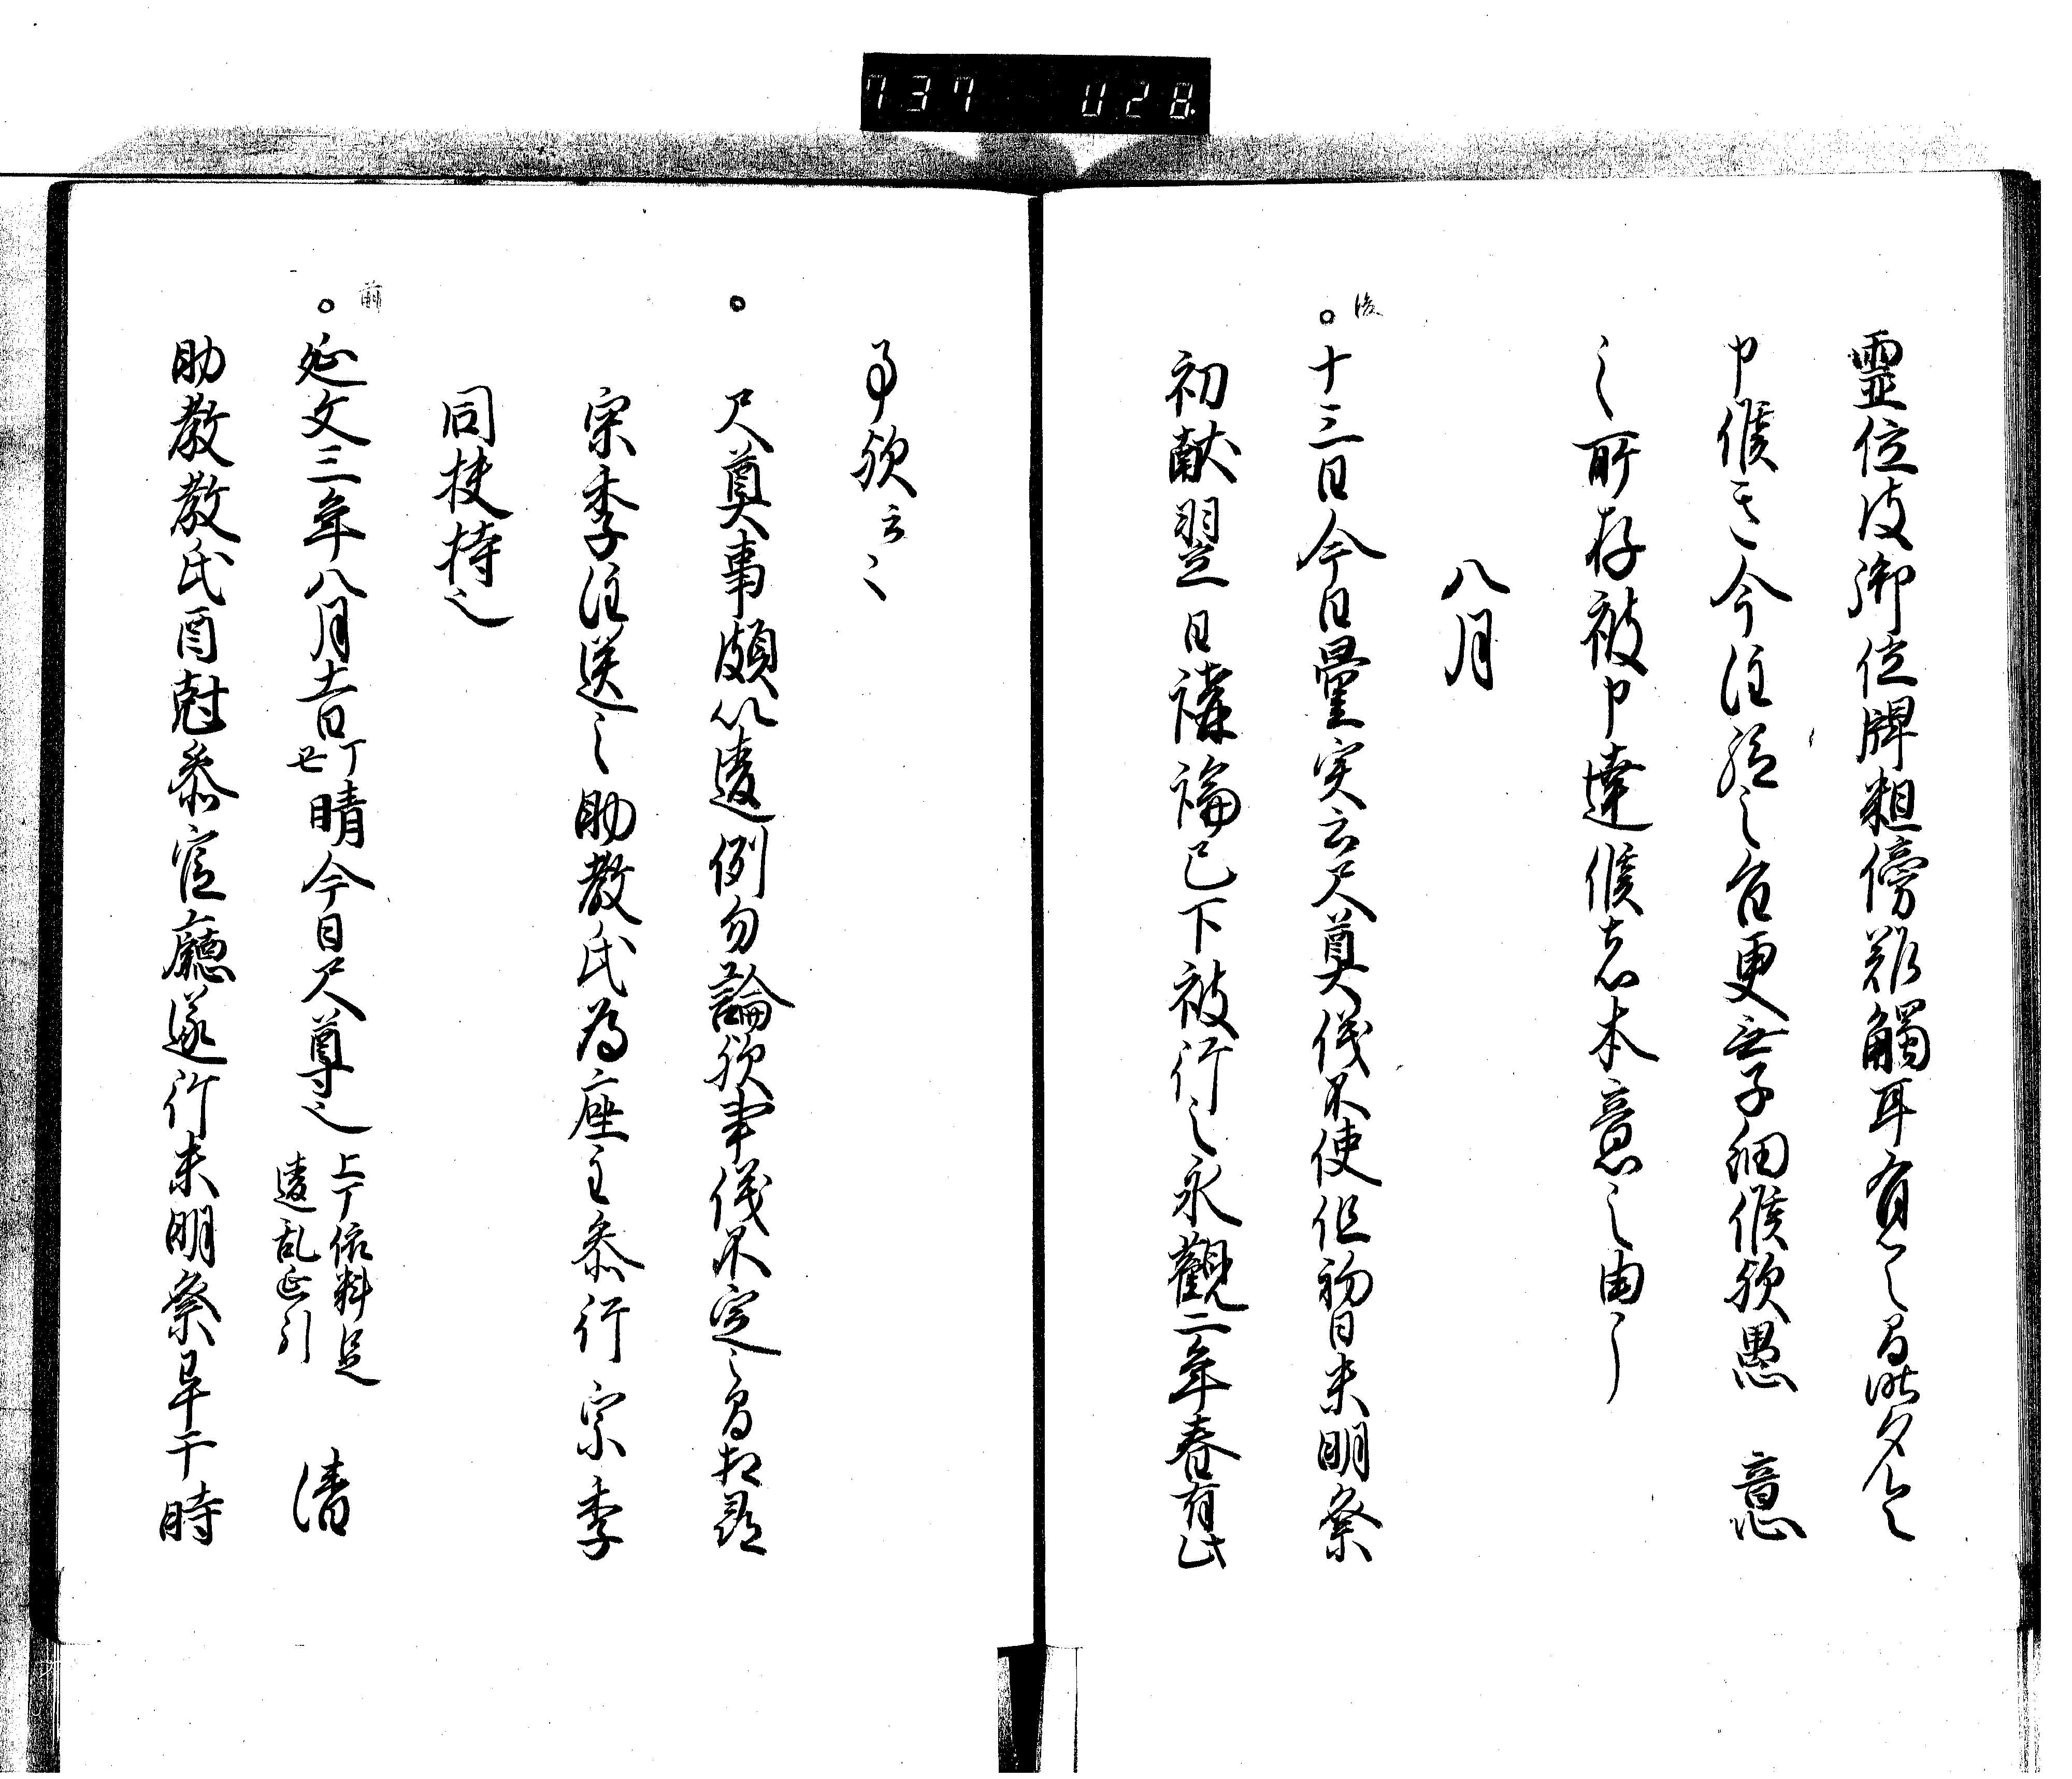 737 028
霊位彼御位牌粗傍難觸耳有之間此夕令
申候き今注給之旨更無子細候歟愚 意
之所存被申達候者本意之由
八月
後
○十三日今日量実云尺奠儀不使但初日未明祭
初献翌日講論已下被行之永觀二年春有此
事歟云々
○尺奠事頗以違例勿論歟事儀不定之間相尋
宗季注送之助教氏為座主参行宗季
同扶持之
前
○延文三年八月十一日丁丑晴今日尺尊也 上丁依料足違乱延引 清
助教教氏酉尅参官廳遂行未明祭早于時